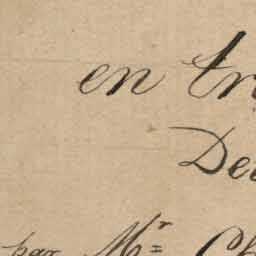 en tr
De
par Mr. Ch